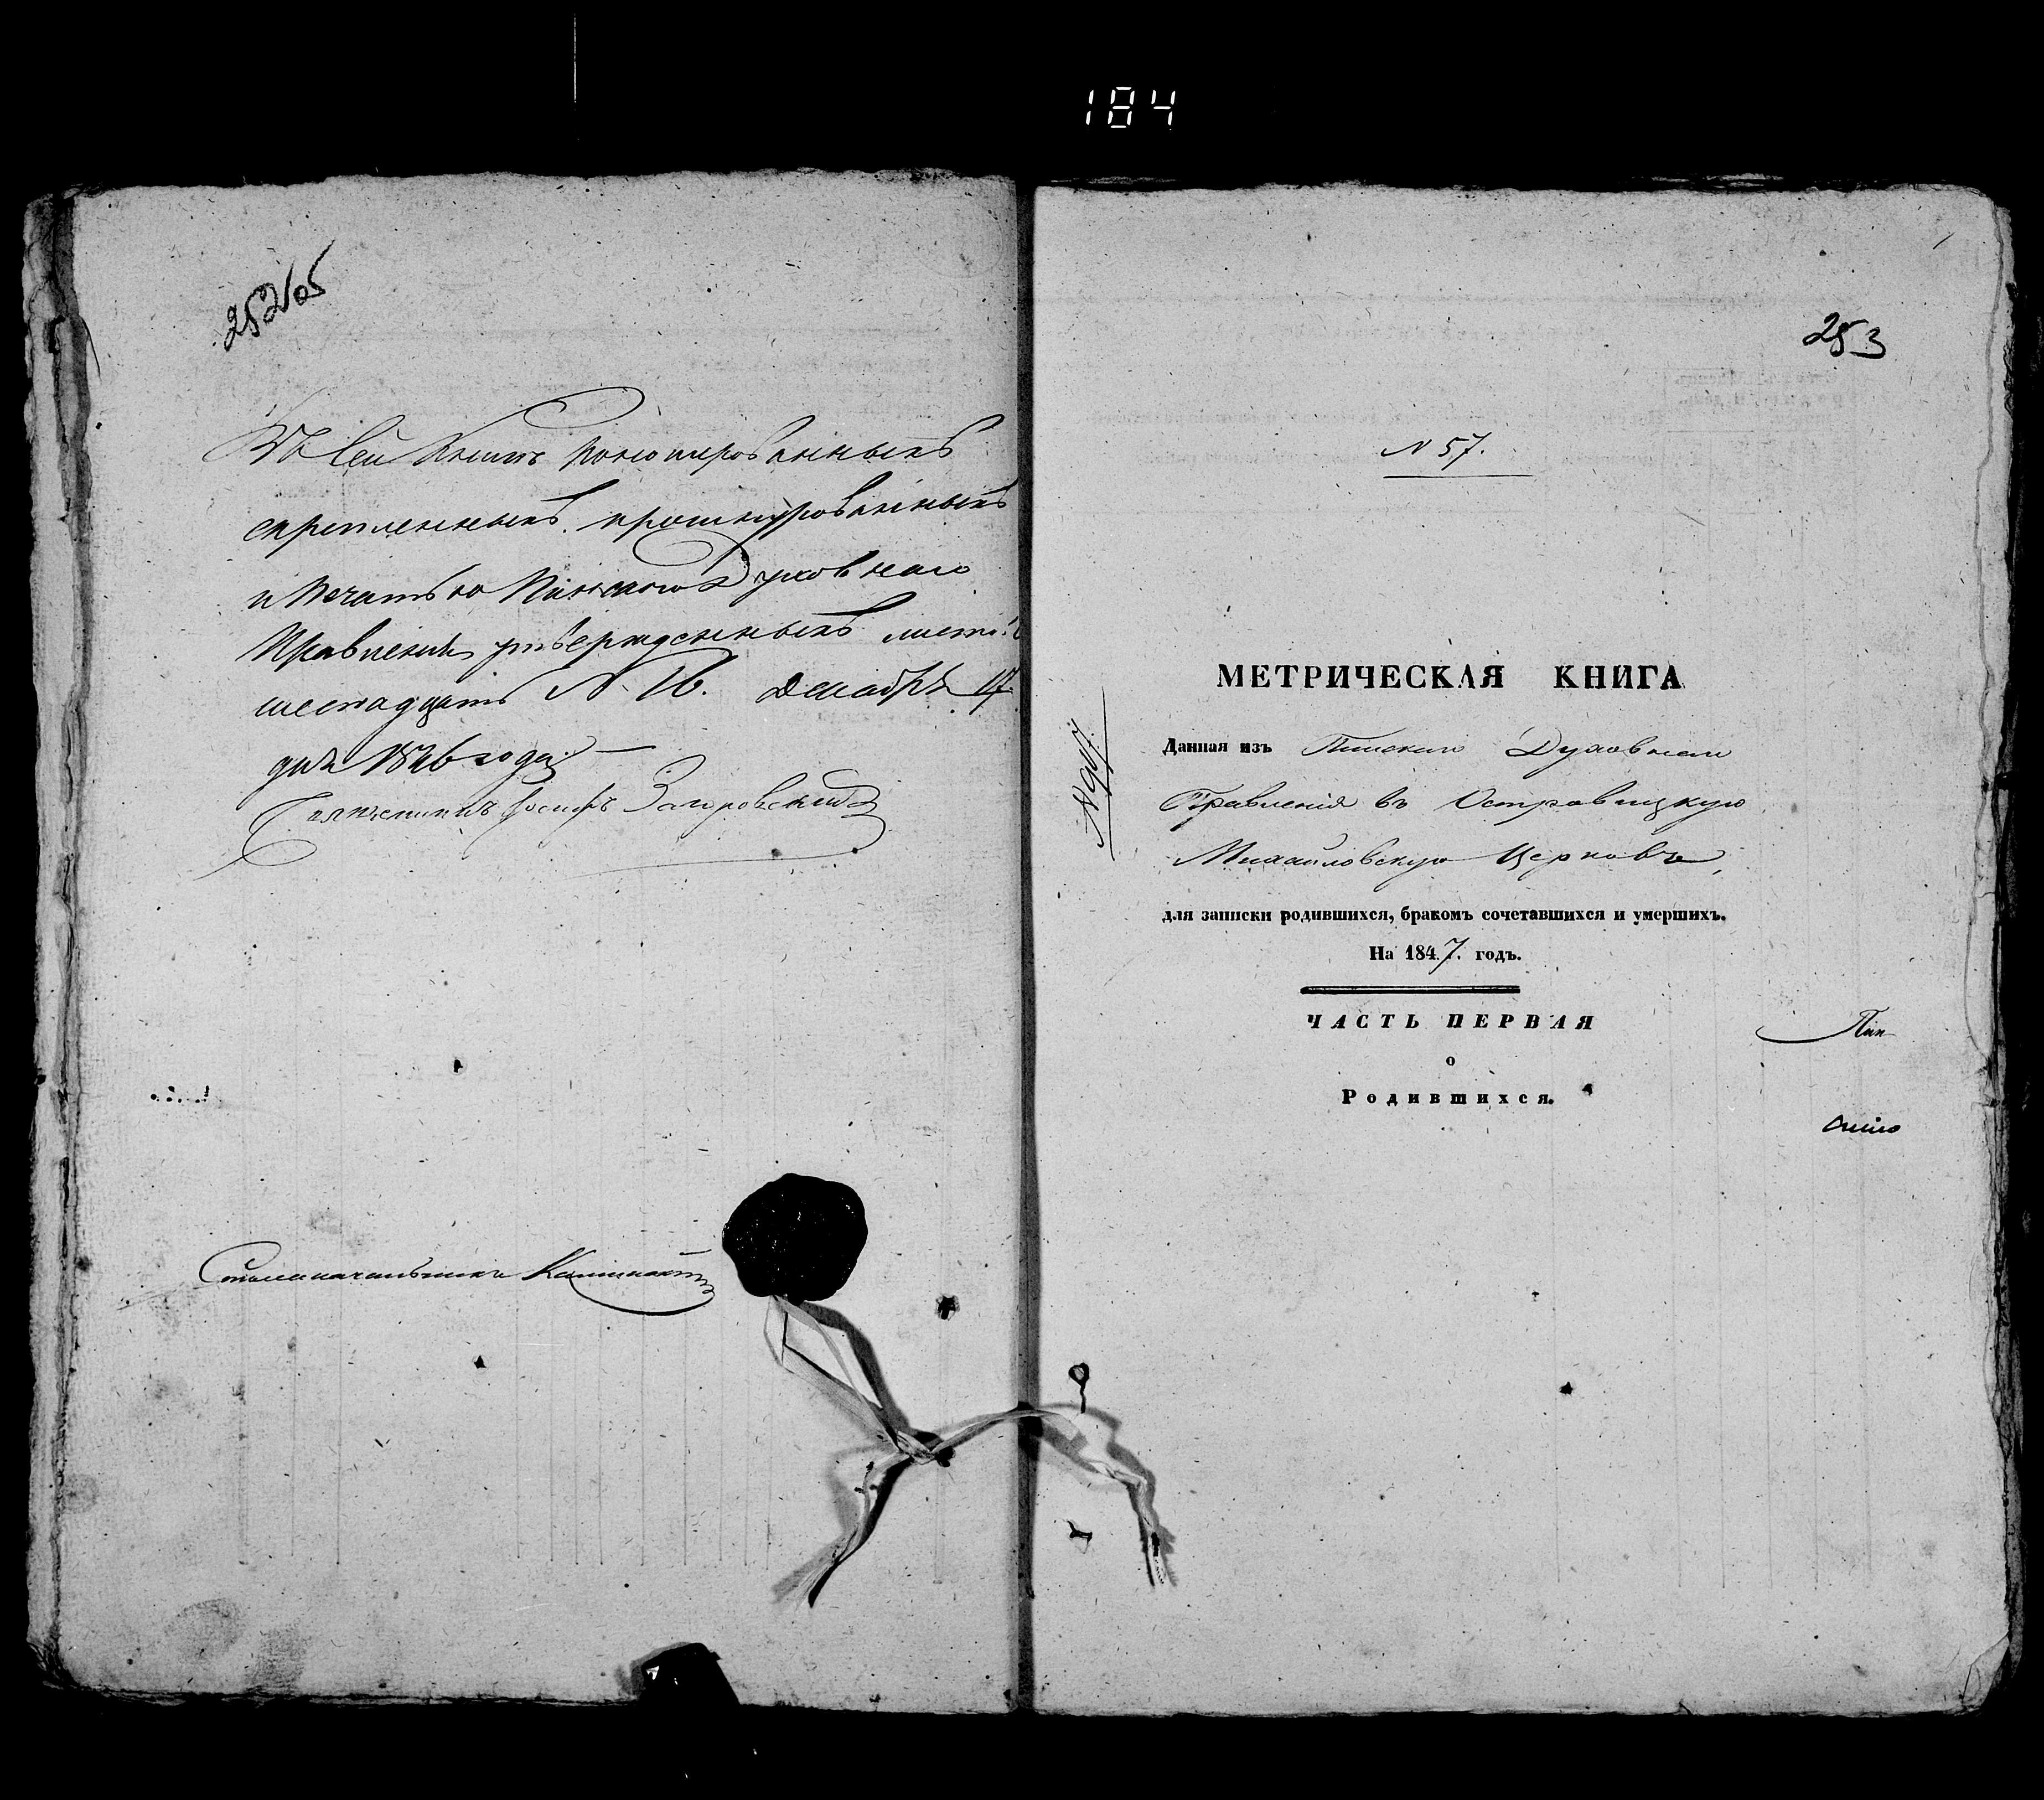 184
252 об
Въ сей книгѣ пономированныхъ
скрепленныхъ прошнурованныхъ
и Печатью Пинскаго Духовнаго
Правленія утвержденныхъ листов
шестнадцать N. 16. Декабря 17
дня 1846 года
Священникъ Іосифъ Загоровскій
Столоначальникъ
253
N 57.
МЕТРИЧЕСКАЯ КНИГА
Данная изъ Пинскаго Духовнаго
Правленія въ Островицкую
Михайловскую Церковь,
для записки родившихся, бракомъ сочетавшихся и умершихъ.
На 1847. годъ.
ЧАСТЬ ПЕРВАЯ
о
Родившихся.
Пин
скаго